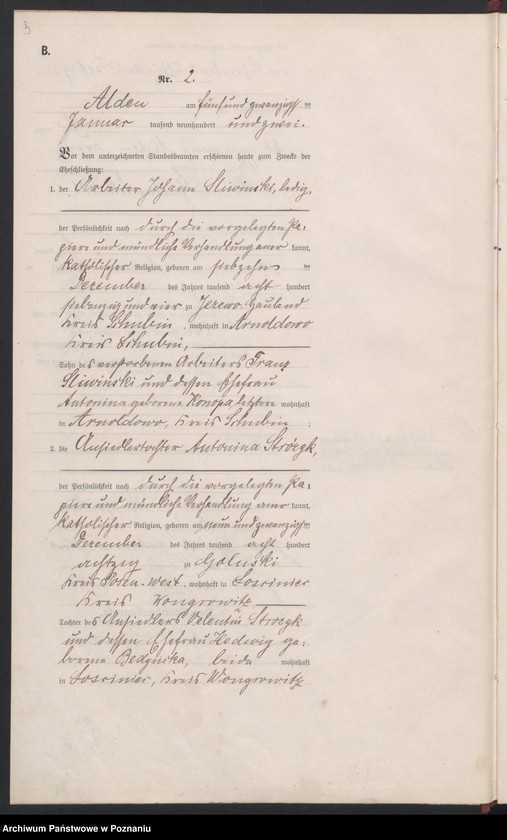 3
B.
Nr. 2.
Alden am fünfundzwanzigsten
Januar tausend neunhundert und zwei.
Vor dem unterzeichneten Standesbeamten erschienen heute zum Zwecke der
Eheschließung:
1. der Arbeiter Johann Sliwinski, ledig,
der Persönlichkeit nach durch die vorgelegten Pa-
piere und mündliche Verhandlung aner kannt,
katholischer Religion, geboren am siebzehnten
Dezember des Jahres tausend acht hundert
siebenzig und vier zu Jezewo-Hauland
Kreis Schubin, wohnhaft in Arnoldowo
Kreis Schubin,
Sohn des verstorbenen Arbeiters Franz
Sliwiński und dessen Ehefrau
Antonina geborene Konopa letztere wohnhaft
in Arnoldowo, Kreis Schubin
2. die Ansiedlertochter Antonina Strózyk,
der Persönlichkeit nach durch die vorgelegten Pa-
piere und mündliche Verhandlung aner kannt,
katholischer Religion, geboren am neunundzwanzigsten
Dezember des Jahres tausend acht hundert
achtzig zu Goluski
Kreis Posen-West, wohnhaft in
Kreis Wongrowitz
Tochter des Ansiedlers Valentin Strozyk
und dessen Ehefrau Hedwig ge-
borene beide wohnhaft
in Kreis Wongrowitz
Archiwum Państwowe w Poznaniu